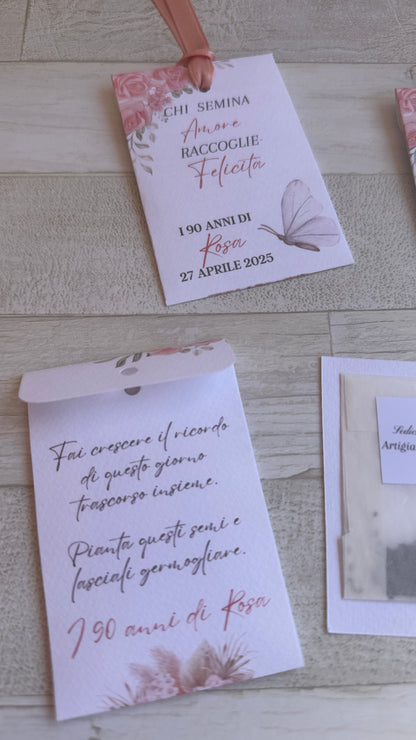 CHI SEMINA
Amore
RACCOGLIE
Felicità
I 90 ANNI DI
Rosa
27 APRILE 2025
Fai crescere il ricordo
di questo giorno
trascorso insieme.
Pianta questi semi e
lasciali germogliare.
I 90 anni di Rosa